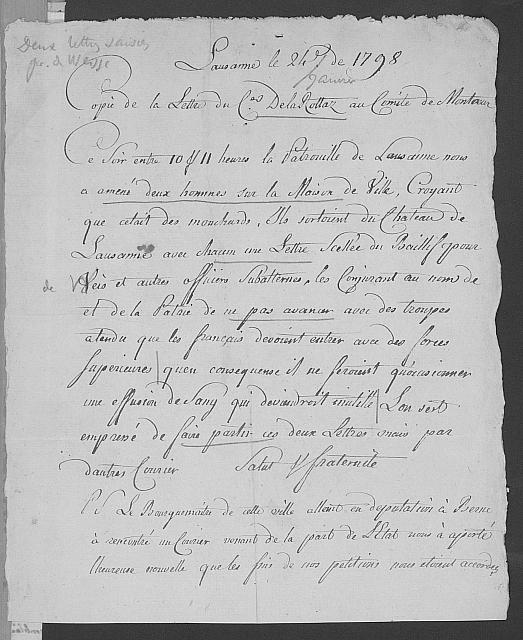 Deux lettres saisies
par de Weisse
Lausanne le 24e de 1798
Janvier
Copie de la Lettre du Cen Dela Rottaz au Comité de Monteaux
Ce Soir entre 10 & 11 heures la Patrouille de Lausanne nous
a amené deux hommes sur la Maison de Ville, Croyant
que cetait des mouchards, Ils sortoient du Chateau de
Lausanne avec chacun une Lettre Scellée du Baillif pour
de Weis et autres officiers Subalternes, les Conjurant au nom de
et de la Patrie de ne pas avancer avec des troupes
atendu que les français devoient entrer avec des forces
Supérieures qu'en consequense il ne feroient qu'ocasionner
une effusion de Sang qui deviendroit inutille L'on sest
empressé de faire partir ces deux Lettres mais par
d'autres Courier Salut & fraternité
PS Le Bourguemaitre de cette ville allant en deputation à Berne
à rencontré un Courier venant de la part de L'Etat nous à aporté
l'heureuse nouvelle que les fins de nos petitions nous etoient accordez